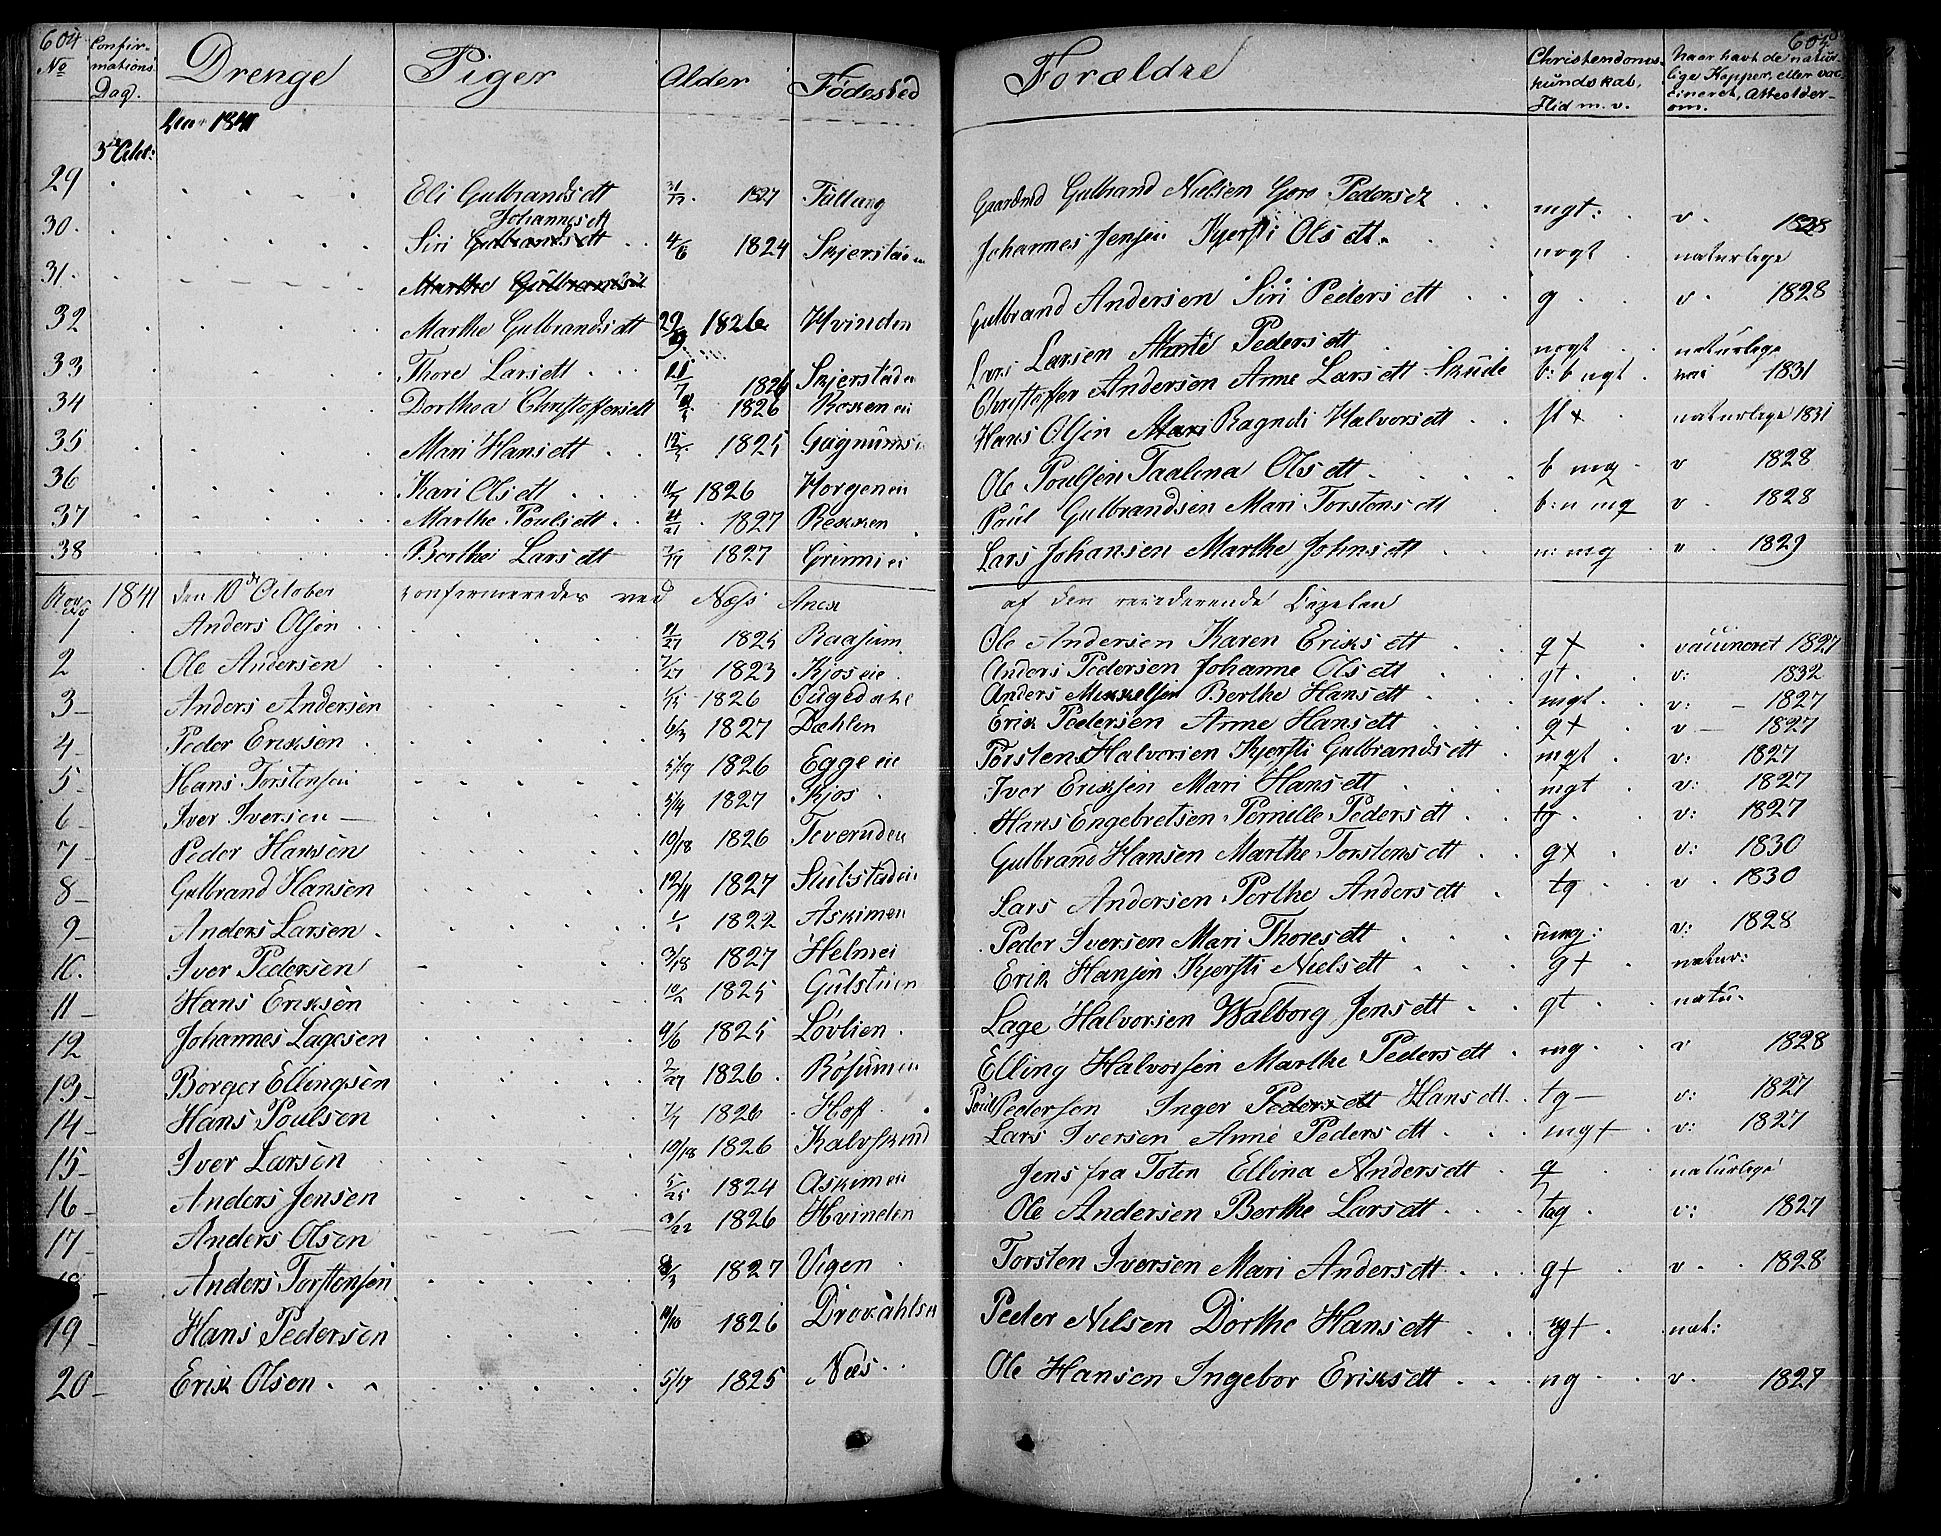 604 605
No Confirmations Dag. Drenge Piger Alder Födested Forældre Christendomskundskab, Flid m. v. Naar havt de naturlige Kopper, eller vaccineret, Attest derom.
1841
3die Oct:
29 Eli Gulbrandsdtt 1827 Gaardmd Gulbrand Nielsen Goro Pedersd mgt: v. 1828
30. Siri Gulbrandsdtt Johannesdtt 4/6 1824 Skjerstadei Johannes Jensen Kjersti Olsdtt. nogt naturlege
31. Marthe Gulbrandsdt Gulbrand Andersen Siri Pedersdtt g v. 1828
32 Marthe Gulbrandsdtt 29/9 1826 Hvinden Lars Larsen Pedersdtt nogt naturlege
33 Thore Larsdtt 11/7 1826 Skjerstadei Christoffer Andersen Anne Larsdtt Skude b: b ngt 1831
34 Dorthea Christoffersdtt 1826 Rosenei Hans Olsen Mari Ragndi Halvorsdtt naturlege 1831
35 Mari Hansdtt 1825 Ole Poulsen Taalena Olsdtt b mg v 1828
36 Kari Olsdtt 1826 Horgenei Paul Gulbrandsen Mari Torstensdtt b: n mg v. 1828
37 Marthe Poulsdtt 1827 Rekken Lars Johansen Marthe Johnsdtt n: mg v. 1829
38 Berthe Larsdtt 1827 Grinniei
1841 den 10de October confirmeredes ved Næss Anex af den residerende Capelan
1 Anders Olsen 1825 Raasum Ole Andersen Karen Eriksdtt g+ vaccineret 1827
2 Ole Andersen 1823 Kjoseie Anders Pedersen Johanne Olsdtt gt. v: 1832
3 Anders Andersen 1826 Anders Mikkelsen Berthe Hansdtt mgt. v: 1827
4 Peder Eriksen 6/3 1827 Dæhlen Erik Pedersen Anne Hansdtt g+ v 1827
5 Hans Torstensen 5/19 1826 Eggeeie Torstens Halvorsen Kjersti Gulbrandsdtt mgt v: 1827
6 Iver Iversen 1827 Kjos Iver Eriksen Mari Hansdtt mgt v: 1827
7 Peder Hansen 10/18 1826 Teveruden Hans Engebretsen Pernille Pedersdtt tg. v: 1827
8 Gulbrand Hansen 12/11 1827 Slubstadei Gulbrand Hansen Marthe Torstensdtt g+ v: 1830
9 Anders Larsen 1/1 1822 Askimen Lars Andersen Berthe Andersdtt tg v. 1830
10. Iver Pedersen 3/18 1827 Helmei Peder Iversen Mari Thoresdtt v: 1828
11 Hans Eriksen 1825 Gulstuen Erik Hansen Kjersti Nielsdtt g+ natur:
12 Johannes Lagesen 9/6 1825 Lövlien Lage Halvorsen Walborg Jensdtt gt natu.
13 Borger Ellingsen 2/27 1826 Rösumen Elling Halvorsen Marthe Pedersdtt mg v 1828
14 Hans Poulsen 7/7 1826 Hoff Poul Pedersen Inger Pedersdtt Hansdt. tg v: 1827
15 Iver Larsen 10/18 1826 Kalvskind Lars Iversen Anne Pedersdtt mg+ v: 1827
16 Anders Jensen 5/25 1824 Askimen Jens fra Toten Ellina Andersdtt g naturlege
17 Anders Olsen 1826 Hvinden Ole Andersen Berthe Larsdtt tog v: 1827
18 Anders Torstensen 8/3 1827 Vigen Torsten Iversen Mari Andersdtt g+ v. 1828
19 Hans Pedersen 1826 Peder Nilsen Dorthe Hansdtt nat:
20 Erik Olsen 5/17 1825 Næs Ole Hansen Ingebor Eriksdtt ng v. 1827